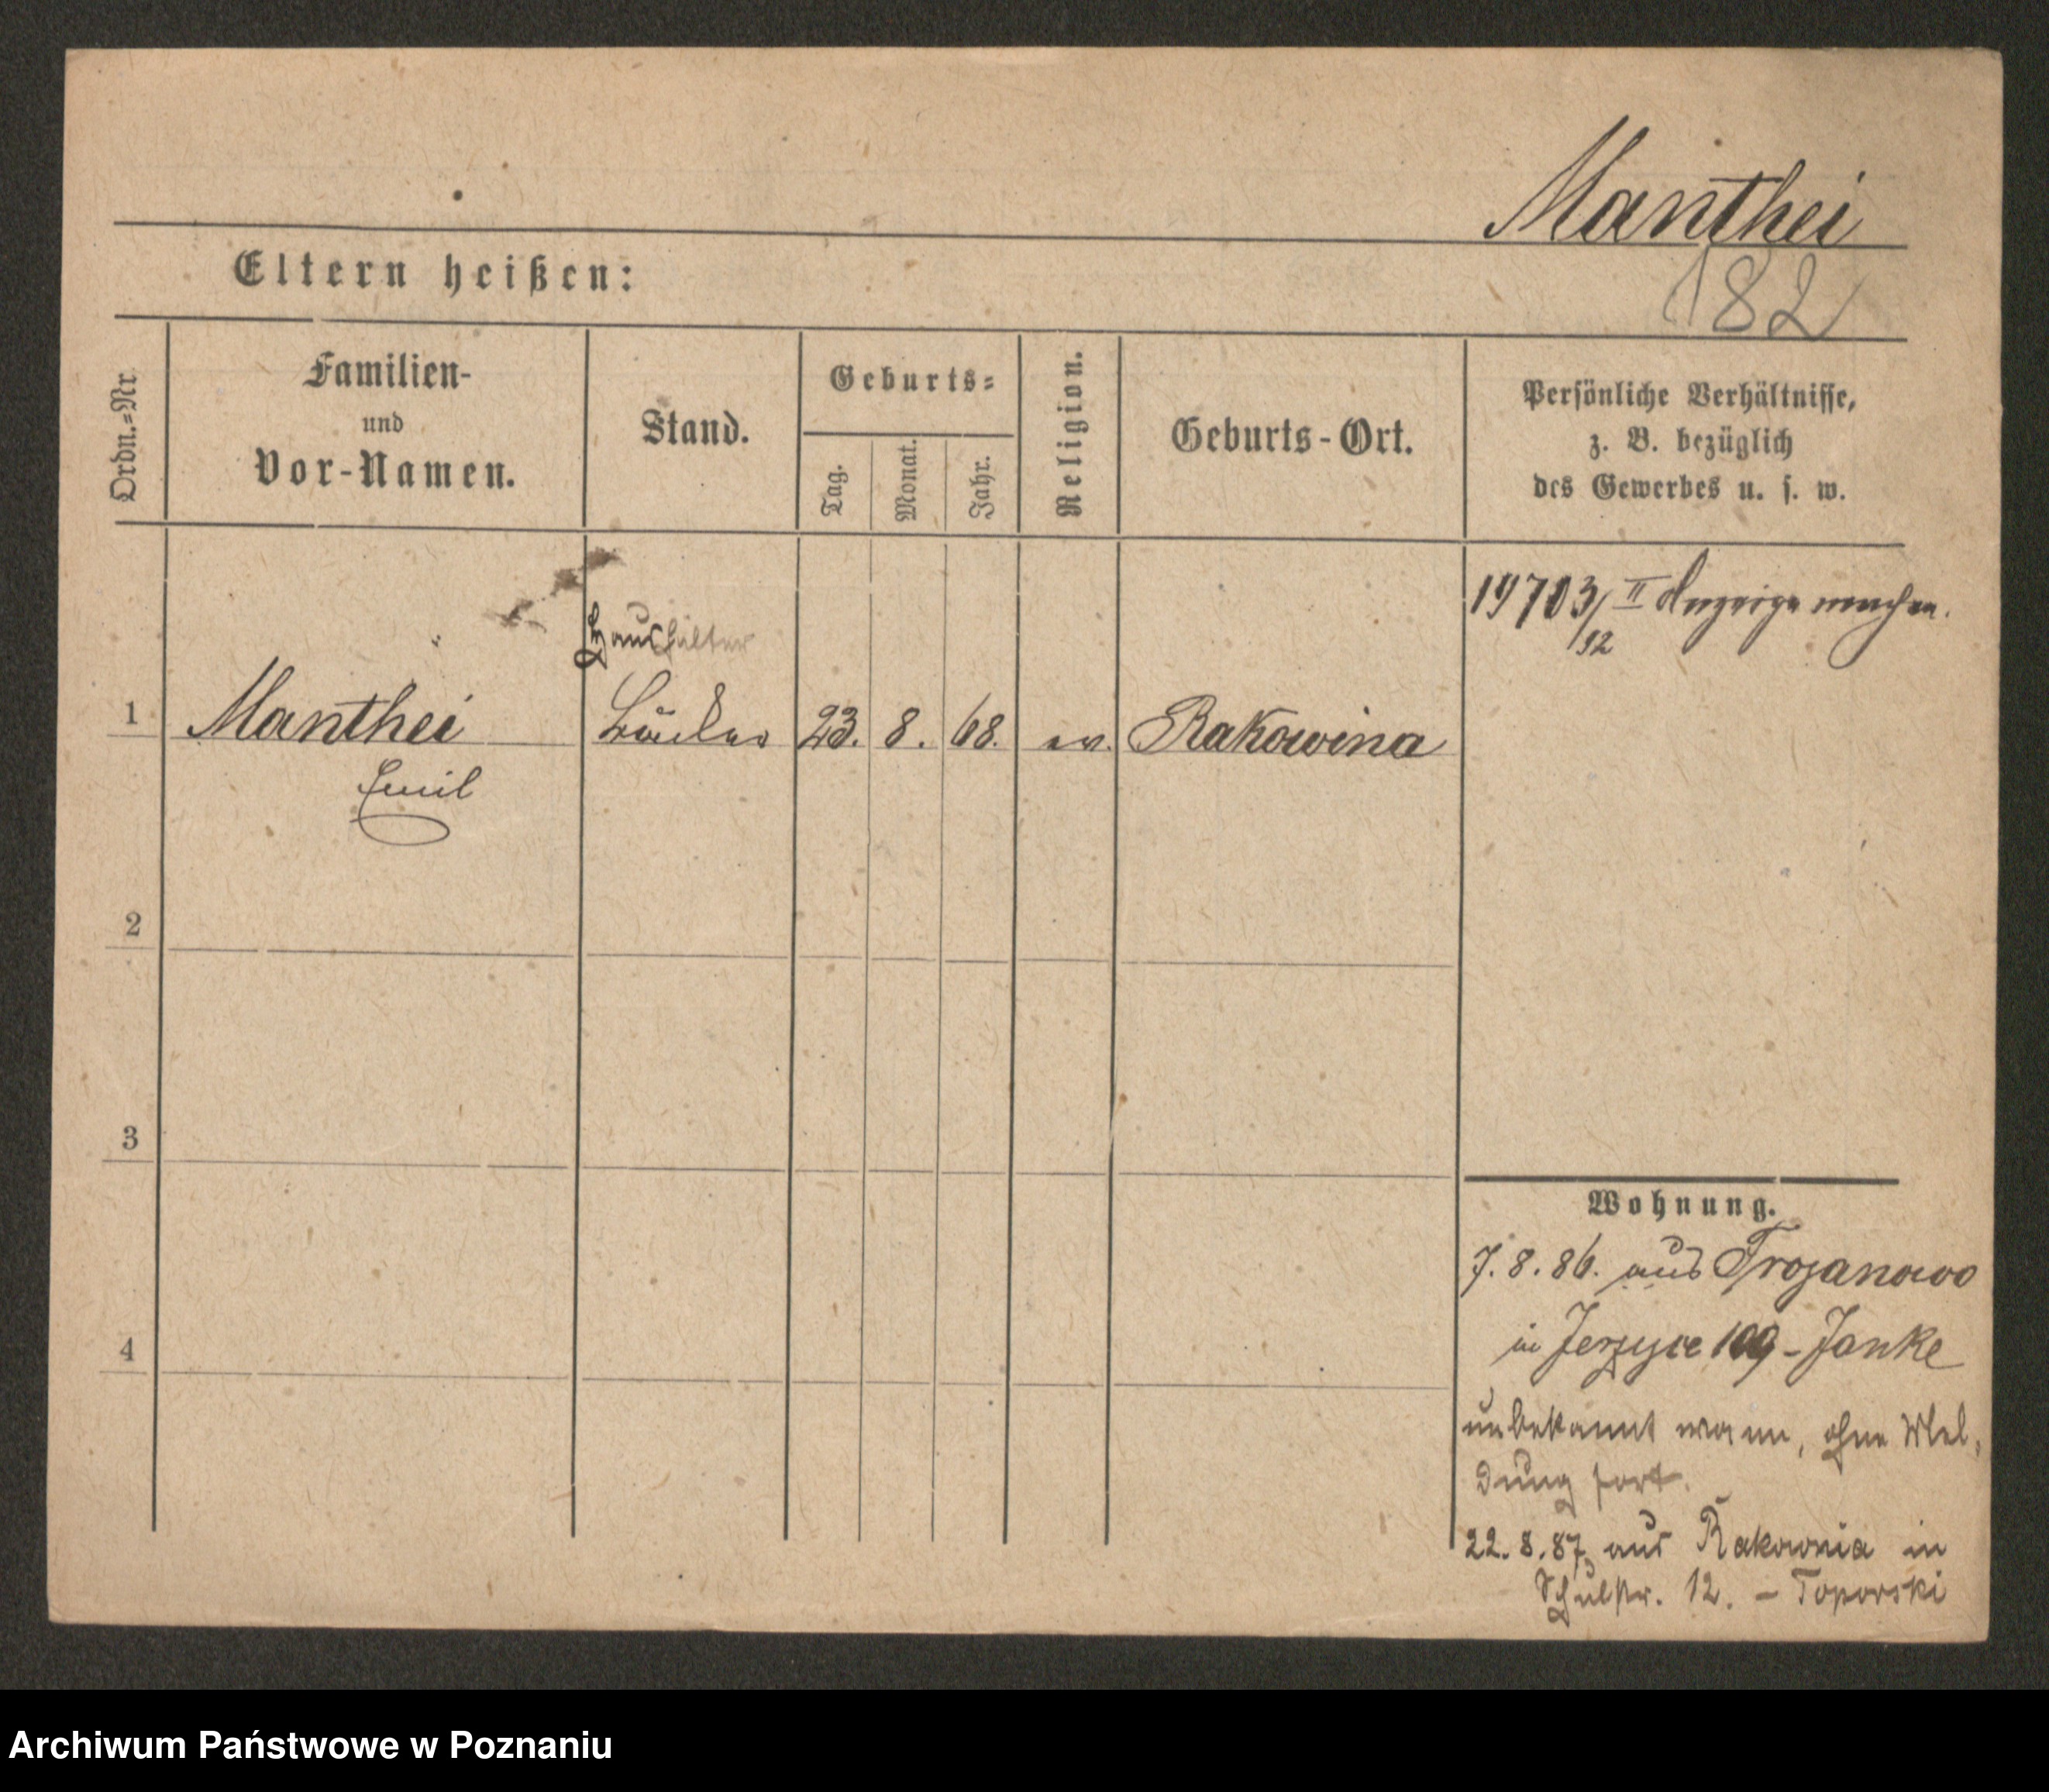 Manthei
182
Eltern heißen:
Ordn.-Nr.
Familien-
und
Vor-Namen.
Stand.
Geburts-
Tag.
Monat.
Jahr.
Religion.
Geburts-Ort.
Persönliche Verhältnisse,
z. B. bezüglich
des Gewerbes u. s. w.
19703/92 II Anzeige machen.
Haushälter
1 Manthei Bäcker 23. 8. 68. ev. Rakowina
Emil
2
3
4
Wohnung.
7. 8. 86. aus Trojanowo
in Jerzyce 109 - Janke
unbekannt wann, ohne Mel-
dung fort.
22. 8. 87, aus Rakownia in
Schulstr. 12. - Toporski
Archiwum Państwowe w Poznaniu